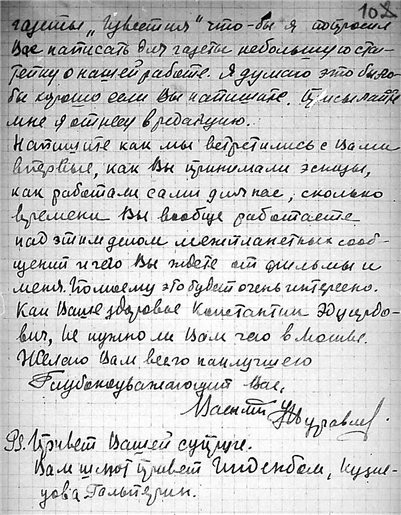 102
газеты "Известия" что-бы я попросил
Вас написать для газеты небольшую ста-
тейку о нашей работе. Я думаю это было-
бы хорошо если Вы напишите. Присылайте
мне я отнесу в редакцию.
Напишите как мы встретились с Вами
впервые, как Вы принимали эскизы,
как работали сами для нас, сколько
времени Вы вообще работаете
над этим делом межпланетных сооб-
щений и чего Вы ждете от фильмы и
меня. Помоему это будет очень интересно.
Как Ваше здоровье Константин Эдуардо-
вич, не нужно ли Вам чего в Москве.
Желаю Вам всего наилучшего
Глубокоуважающий Вас,
Василий Журавлев
PS. Привет Вашей супруге.
Вам шлют привет Тинденбом, Кузне-
цова Гальперин.